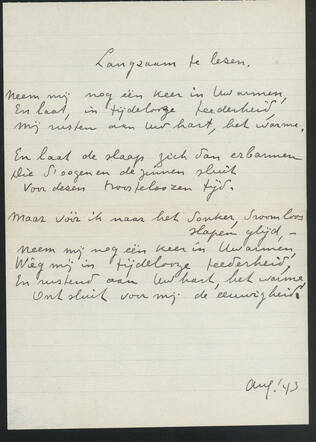 Langzaam te lesen.
Neem mij nog één keer in Uw armen,
En laat, in tijdelooze teederheid,
Mij rusten aan Uw hart, het warme.
En laat de slaap zich dan erbarmen
Die d'oogen en de zinnen sluit
Voor dezen troosteloozen tijd.
Maar vóór ik naar het donker, droomloos
slapen glijd, –
Neem mij nog één keer in Uw armen,
Wieg mij in tijdelooze teederheid,
En rustend aan Uw hart, het warme,
Ontsluit voor mij de eeuwigheid.
Aug. '43